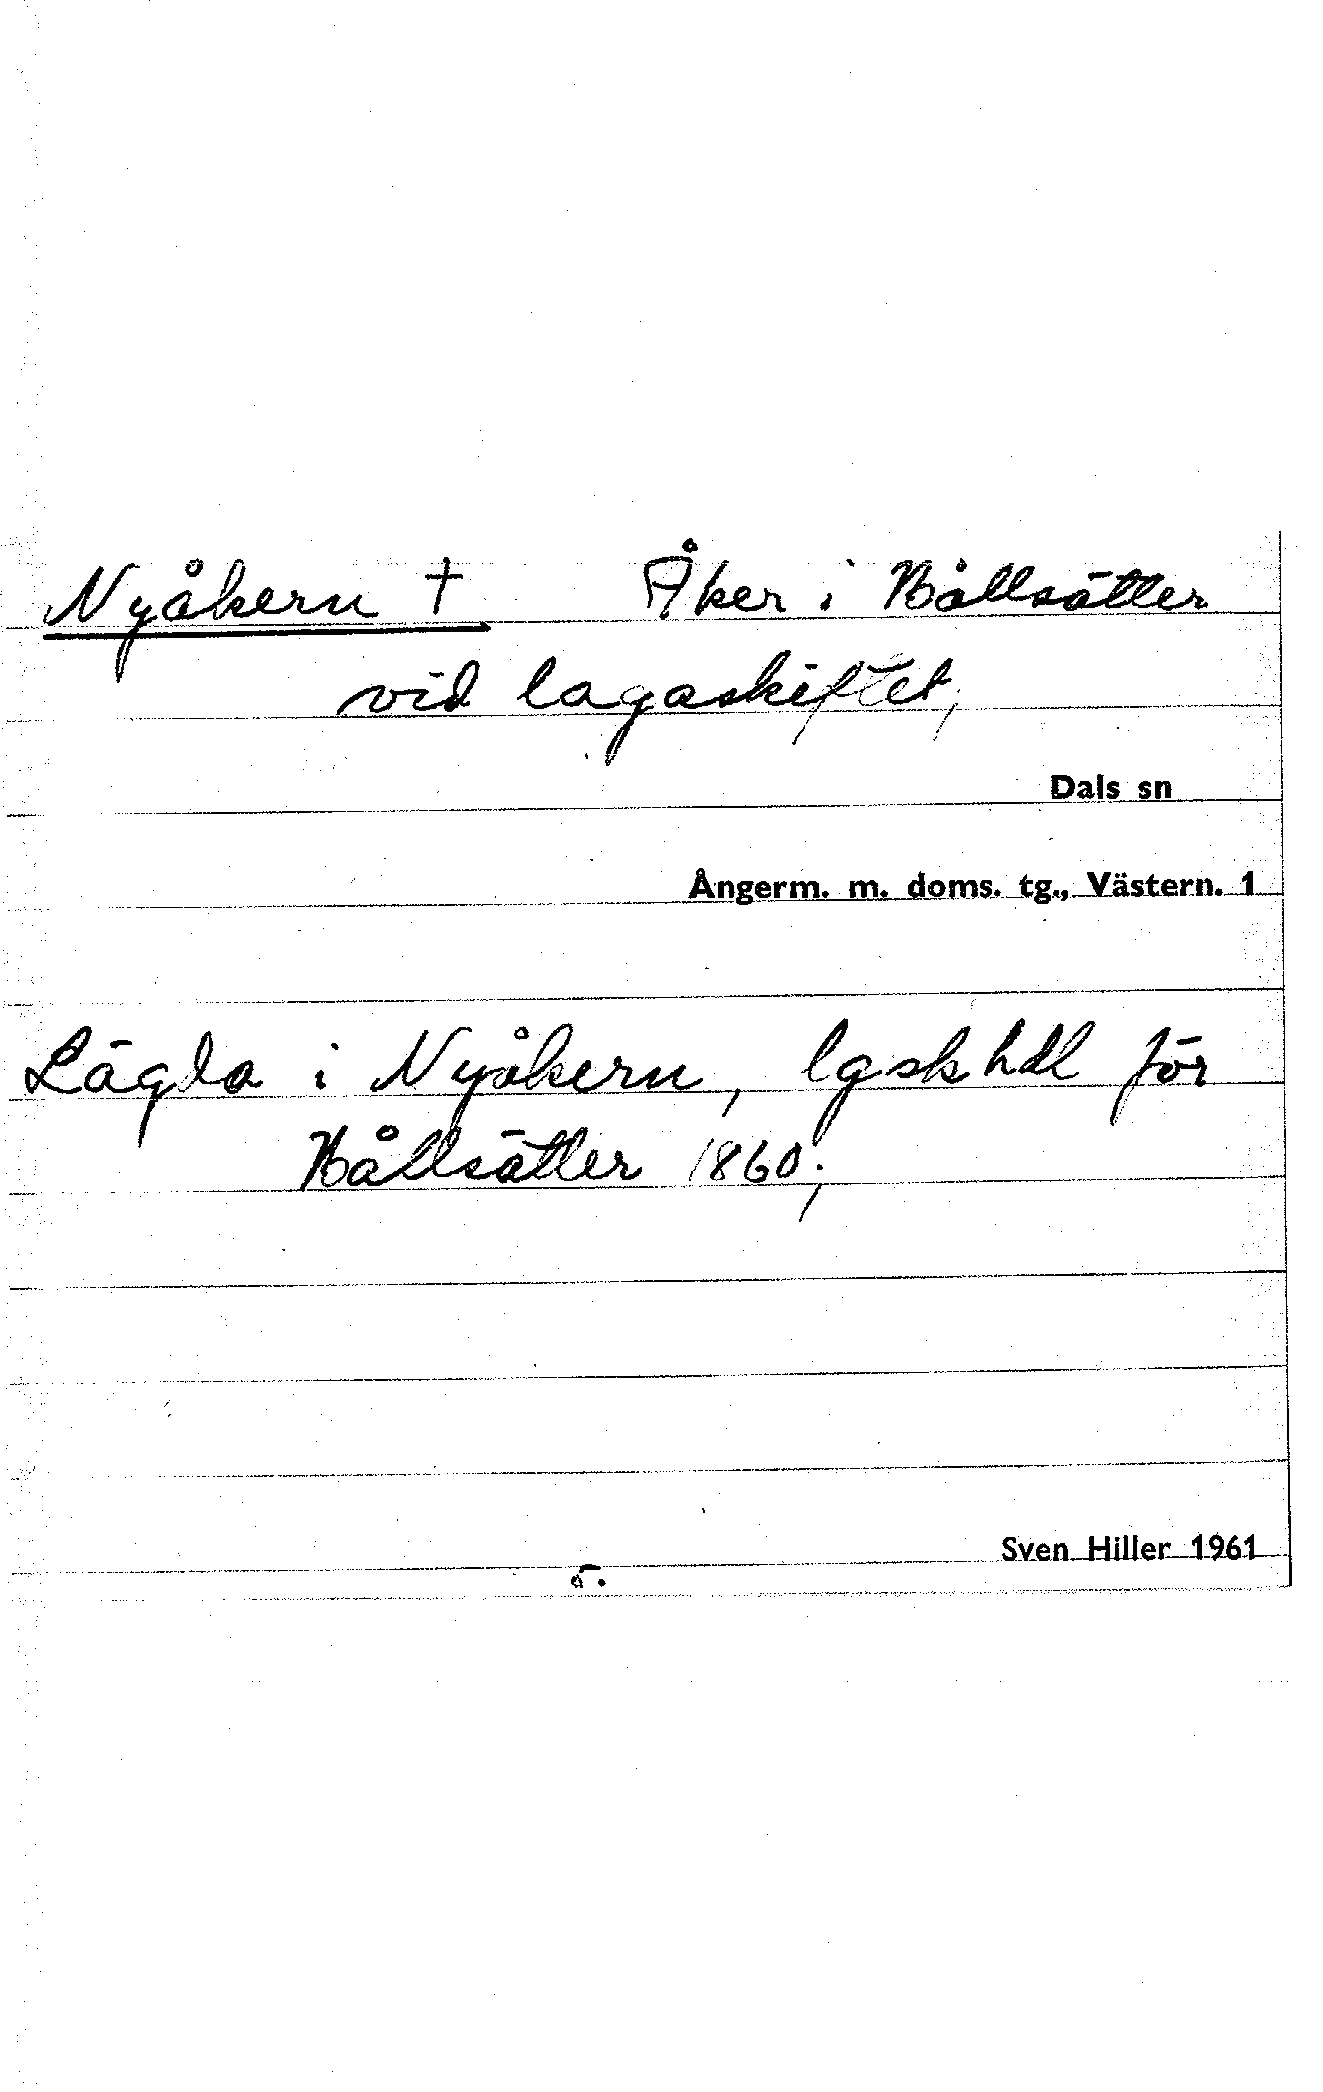 Nyåkern † Åker i Bållsätter
vid lagaskiftet,
Dals sn
Ångerm. m. doms. tg., Västern. 1
Lägda i Nyåkern, lgsk hdl för
Bållsätter 1860;
Sven Hiller 1961